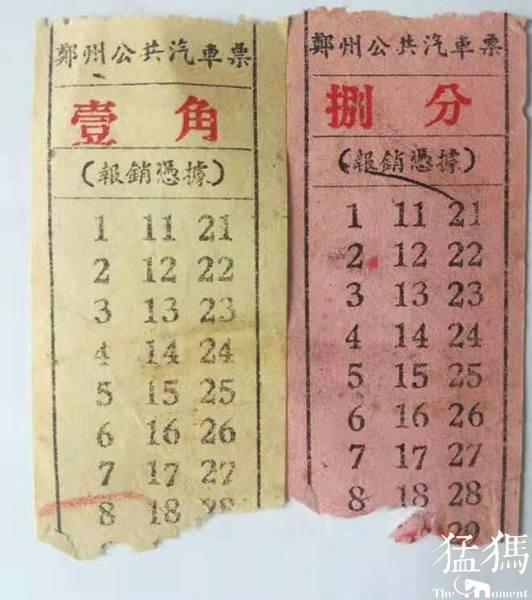 鄭州公共汽車票
壹角
(報銷憑據)
1 11 21
2 12 22
3 13 23
4 14 24
5 15 25
6 16 26
7 17 27
8 18 28
鄭州公共汽車票
捌分
(報銷憑據)
1 11 21
2 12 22
3 13 23
4 14 24
5 15 25
6 16 26
7 17 27
8 18 28
29
猛獁
The Moment